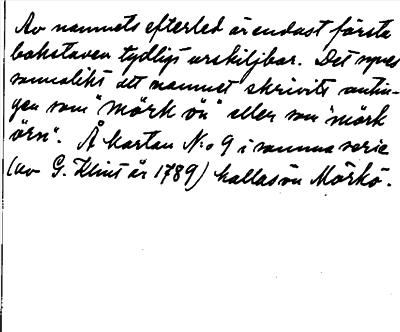 Av namnets efterled är endast första
bokstaven tydligt urskiljbar. Det synes
sannolikt att namnet skrivits antin-
gen som "mörk ön" eller som "mörk
örn". Å kartan N:o 9 i samma serie
(av G. Klint år 1789) kallas ön Mörkö.